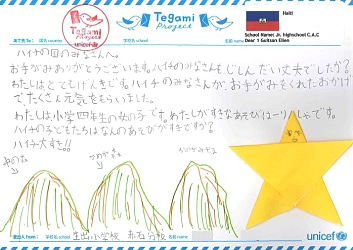 Tegami
Project
unicef
Tegami
Project
Haiti
School Name: Jr. highschool C.A.C
Dear 1 Guitson Ellen
ハイチの国のみなさんへ。
お手がみありがとうございます。ハイチのみなさんもじしんだい丈夫でしたか?
わたしはとてもげんきです。ハイチのみなさんが、お手がみをくれたおかげ
でたくさん元気をもらいました。
わたしは小学四年生の女の子です。わたしがすきなあそびは一りんしゃです。
ハイチの子どもたちはなんのあそびがすきですか?
ハイチ大すき!!
差出人 From
学校名 school
生出小学校 赤石分校
名前 name
unicef